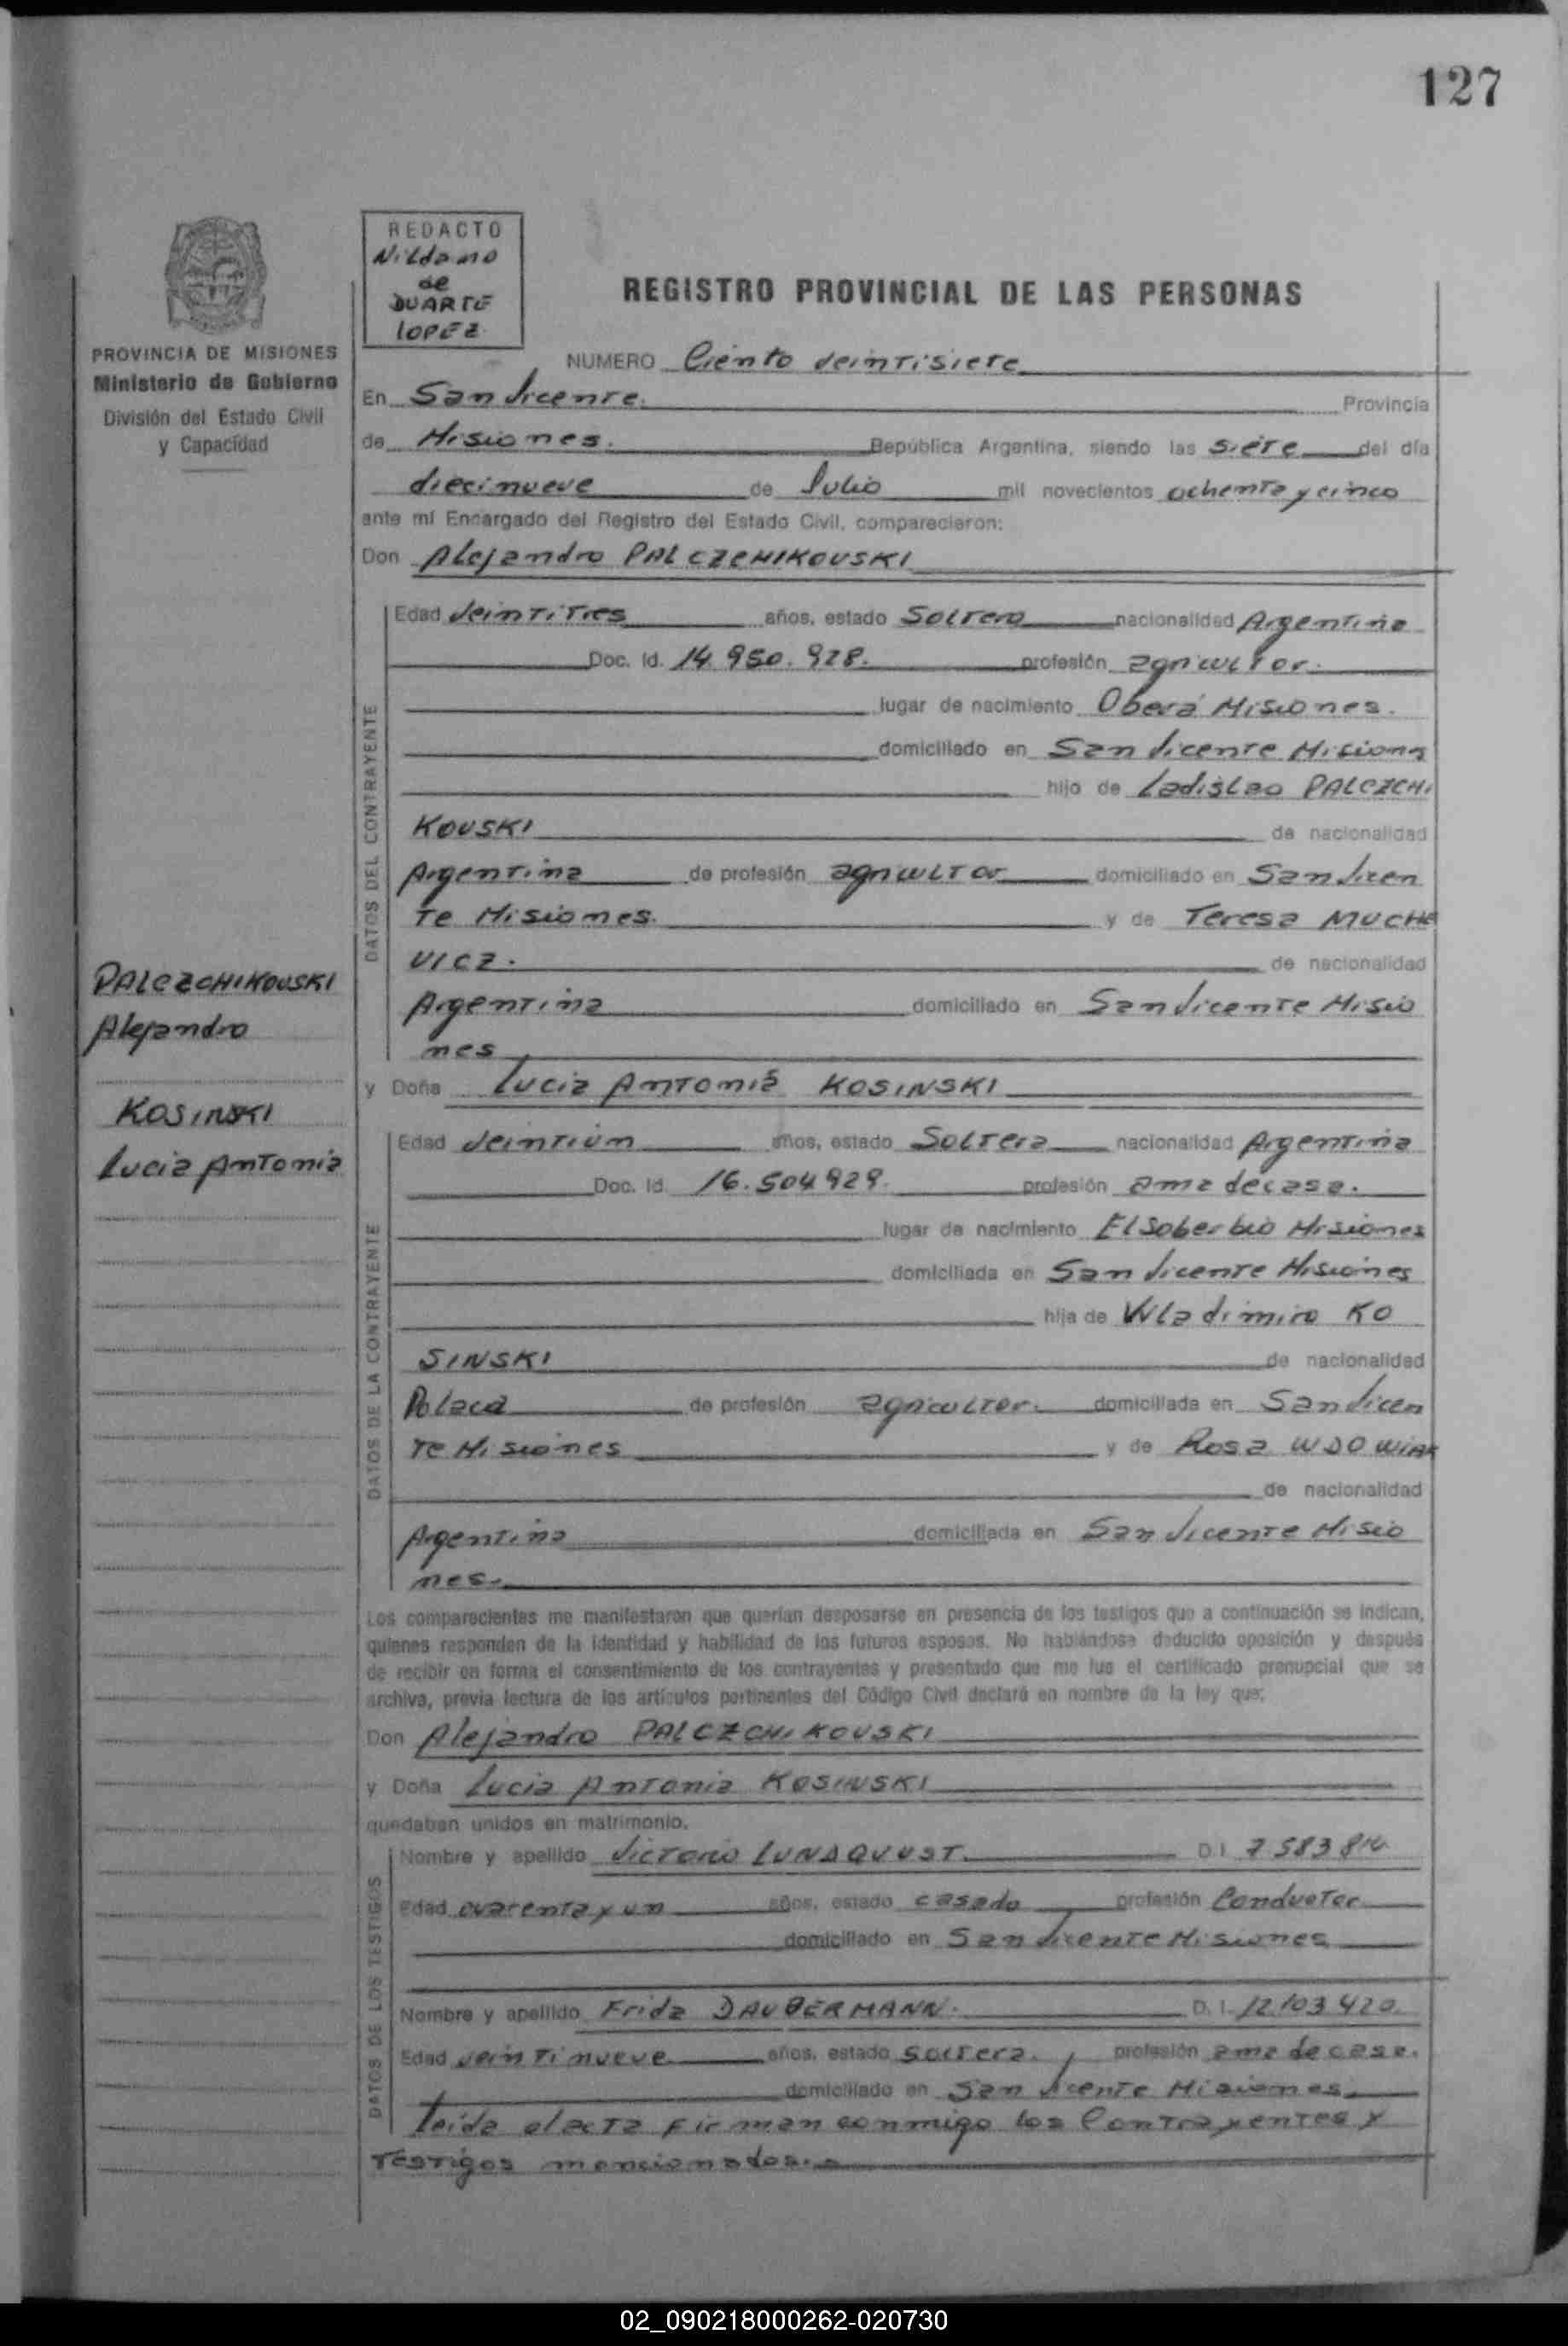 127
REDACTO
Nildamo
de
DUARTE
LOPEZ
REGISTRO PROVINCIAL DE LAS PERSONAS
PROVINCIA DE MISIONES
Ministerio de Gobierno
División del Estado Civil
y Capacidad
NUMERO Ciento veintisiete
En San Vicente. Provincia
de Misiones. República Argentina, siendo las siete del día
diecinueve de Julio mil novecientos ochenta y cinco
ante mí Encargado del Registro del Estado Civil, comparecieron:
Don Alejandro PALCZCHIKOUSKI
DATOS DEL CONTRAYENTE
Edad veintitres años, estado Soltero nacionalidad Argentina
Doc. Id. 14.950.928. profesión agricultor.
lugar de nacimiento Oberá Misiones.
domiciliado en San Vicente Misiones
hijo de Ladislao PALCZCHI
KOUSKI de nacionalidad
Argentina de profesión agricultor domiciliado en San Vicen
te Misiones. y de Teresa MUCHE
VICZ. de nacionalidad
Argentina domiciliado en San Vicente Misio
nes
PALCZCHIKOUSKI
Alejandro
KOSINSKI
Lucia Antonia
y Doña Lucia Antonia KOSINSKI
DATOS DE LA CONTRAYENTE
Edad veintiún años, estado Soltera nacionalidad Argentina
Doc. Id. 16.504.929. profesión ama de casa.
lugar de nacimiento El Soberbio Misiones
domiciliada en San Vicente Misiones
hija de Wladimiro KO
SINSKI de nacionalidad
Polaca de profesión agricultor. domiciliada en San Vicen
te Misiones y de Rosa WDOWIAK
de nacionalidad
Argentina domiciliada en San Vicente Misio
nes.
Los comparecientes me manifestaron que querían desposarse en presencia de los testigos que a continuación se indican,
quienes responden de la identidad y habilidad de los futuros esposos. No habiéndose deducido oposición y después
de recibir en forma el consentimiento de los contrayentes y presentado que me fue el certificado prenupcial que se
archiva, previa lectura de los artículos pertinentes del Código Civil declaré en nombre de la ley que:
Don Alejandro PALCZCHIKOUSKI
y Doña Lucia Antonia KOSINSKI
quedaban unidos en matrimonio.
DATOS DE LOS TESTIGOS
Nombre y apellido Victorio LUNDQUUST. D.I. 7.583.814
Edad cuarenta y un años, estado casado profesión Conductor
domiciliado en San Vicente Misiones
Nombre y apellido Frida DAUBERMANN. D.I. 12.103.420
Edad veintinueve años, estado soltera. profesión ama de casa.
domiciliado en San Vicente Misiones.
Leída el acta firman conmigo los Contrayentes y
testigos mencionados.
02_090218000262-020730